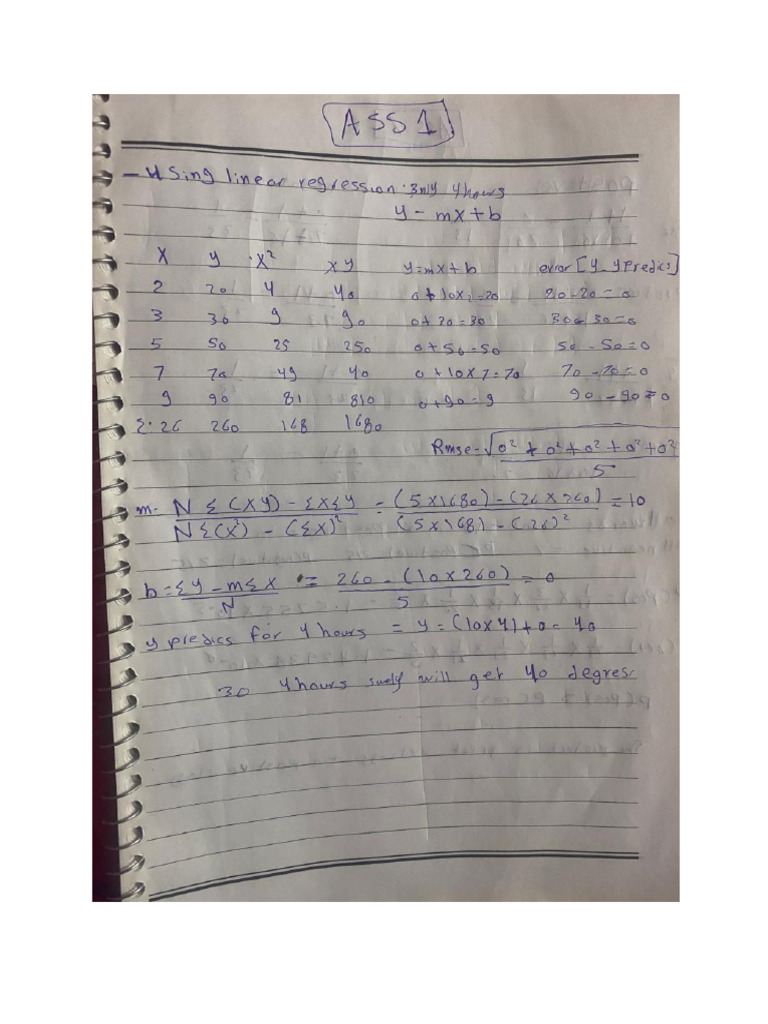 ASS1
- Using linear regression: 4 hours
y = mx + b
X y X² xy y=mx+b error [y - ypredics]
2 20 4 40 0+10x2=20 20-20=0
3 30 9 90 0+30=30 30-30=0
5 50 25 250 0+50=50 50-50=0
7 70 49 40 0+10x7=70 70-70=0
9 90 81 810 0+90=9 90-90=0
Σ: 26 260 168 1680
Rmse = √0²+0²+0²+0²+0²
5
m = N Σ(XY) - ΣXΣY = (5x1680)-(26x260) = 10
NΣ(X²) - (ΣX)² (5x168)-(26)²
b = Σy - mΣX = 260 - (10x260) = 0
N 5
y predics for 4 hours = y = (10x4)+0 = 40
30 4hours will get 40 degres